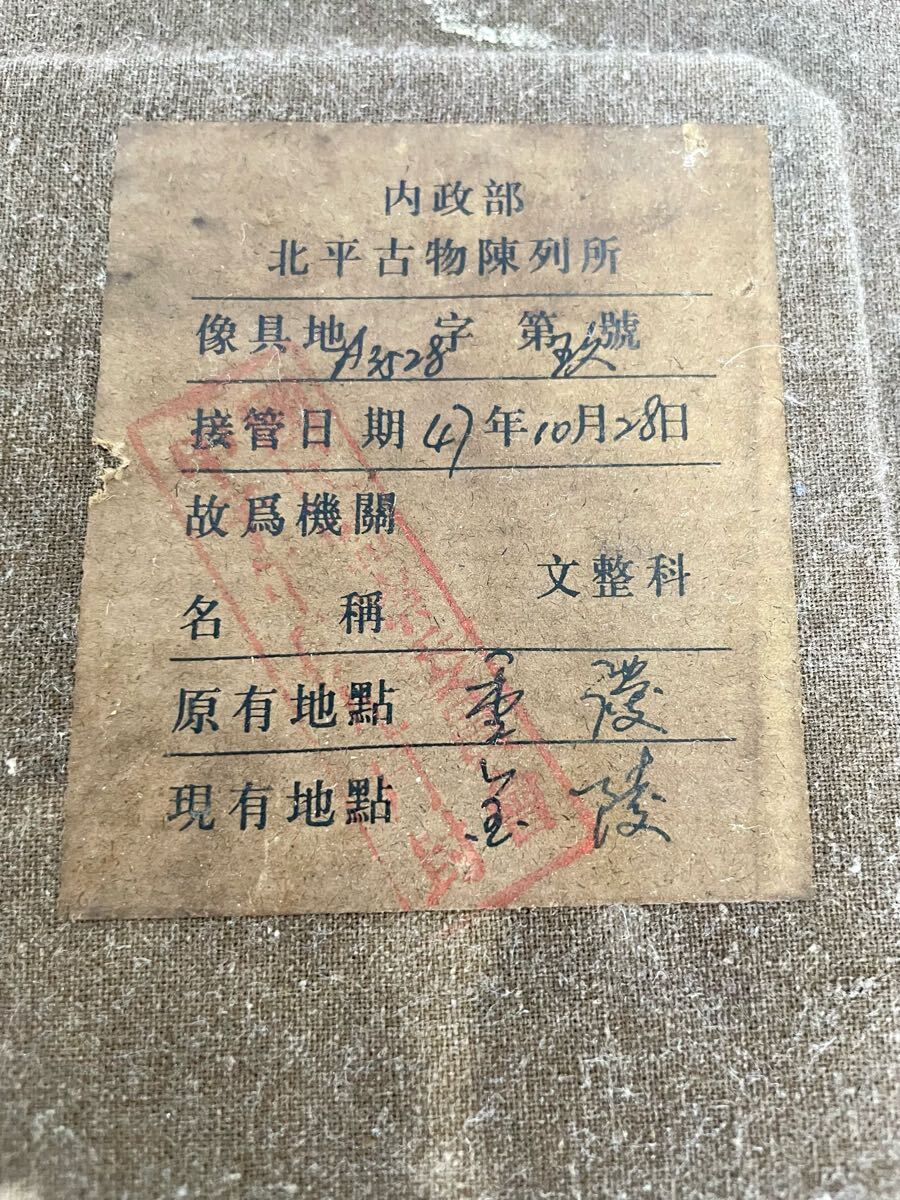 内政部
北平古物陳列所
像具地A3528字 第玖號
接管日期47年10月28日
故爲機關
文整科
名 稱
原有地點
現有地點 金陵